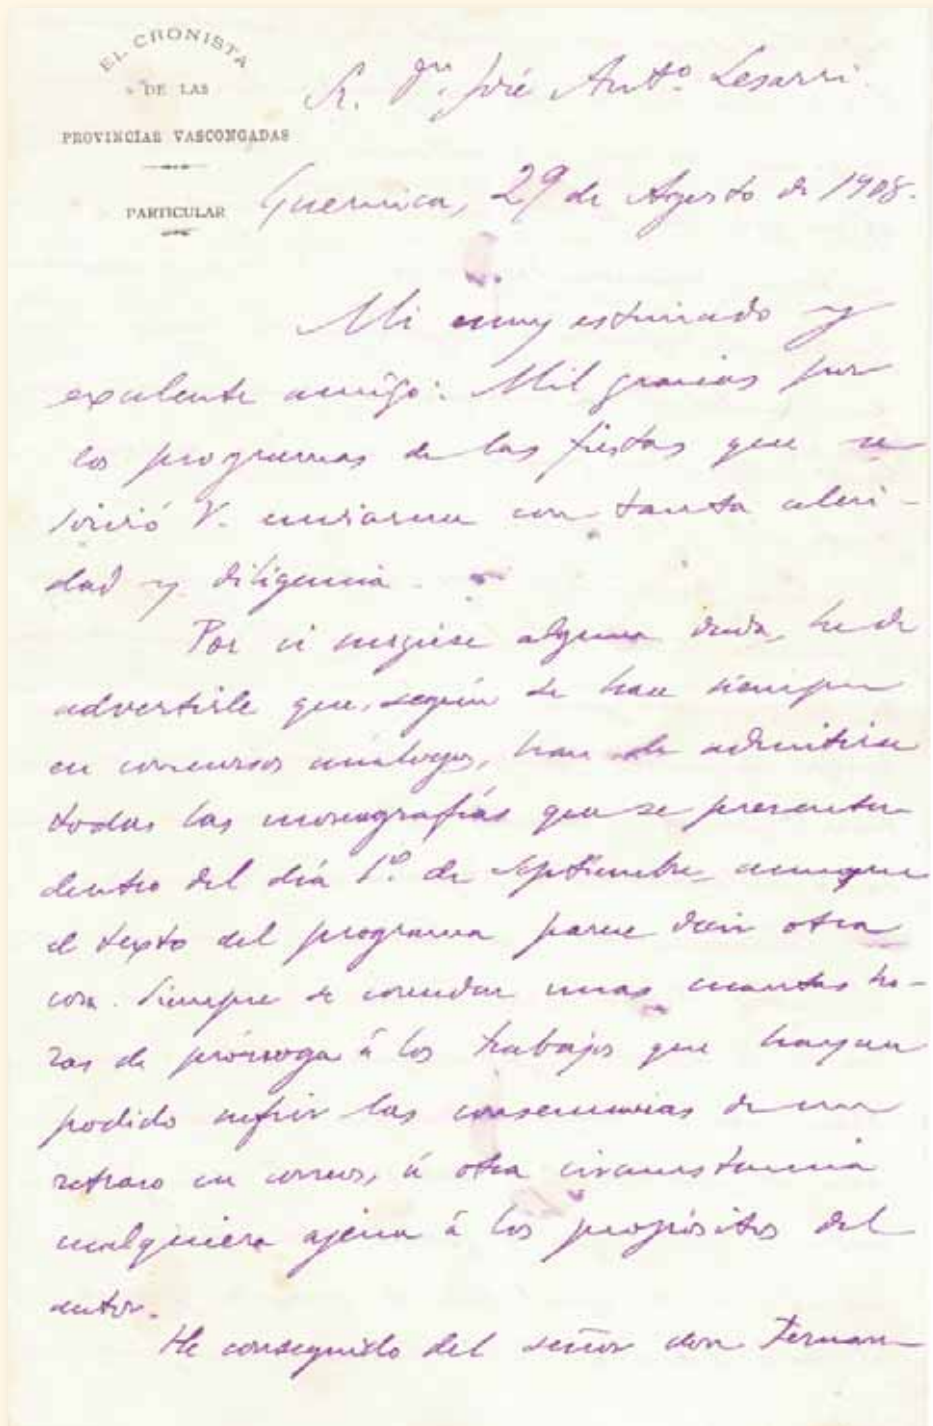 EL CRONISTA
DE LAS
PROVINCIAS VASCONGADAS
PARTICULAR
Sr. Dn. José Antº. Lesarri.
Guernica, 29 de Agosto de 1908.
Mi muy estimado y
excelente amigo: Mil gracias por
los programas de las fiestas que se
sirvió V. enviarme con tanta celeri-
dad y diligencia.
Por si surgiese alguna duda, he de
advertirle que, según se hace siempre
en concursos análogos, han de admitirse
todas las monografías que se presenten
dentro del día 1º. de Septiembre, aunque
el texto del programa parece decir otra
cosa. Siempre se conceden unas cuantas ho-
ras de prórroga á los trabajos que hayan
podido sufrir las consecuencias de un
retraso en correos, ú otra circunstancia
cualquiera ajena á los propósitos del
autor.
He conseguido del señor don Fernan